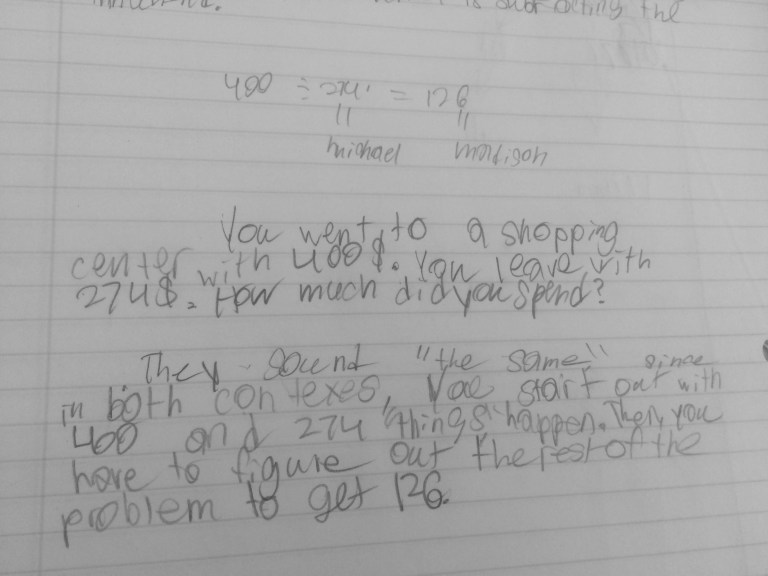 is subtracting the
400 ÷ 274 = 126
michael madison
You went to a shopping
center with 400$. You leave with
with
274$. How much did you spend?
They sound "the same" since
in both contexes, You start out with
400 and 274 "things" happen. Then, you
have to figure out the rest of the
problem to get 126.